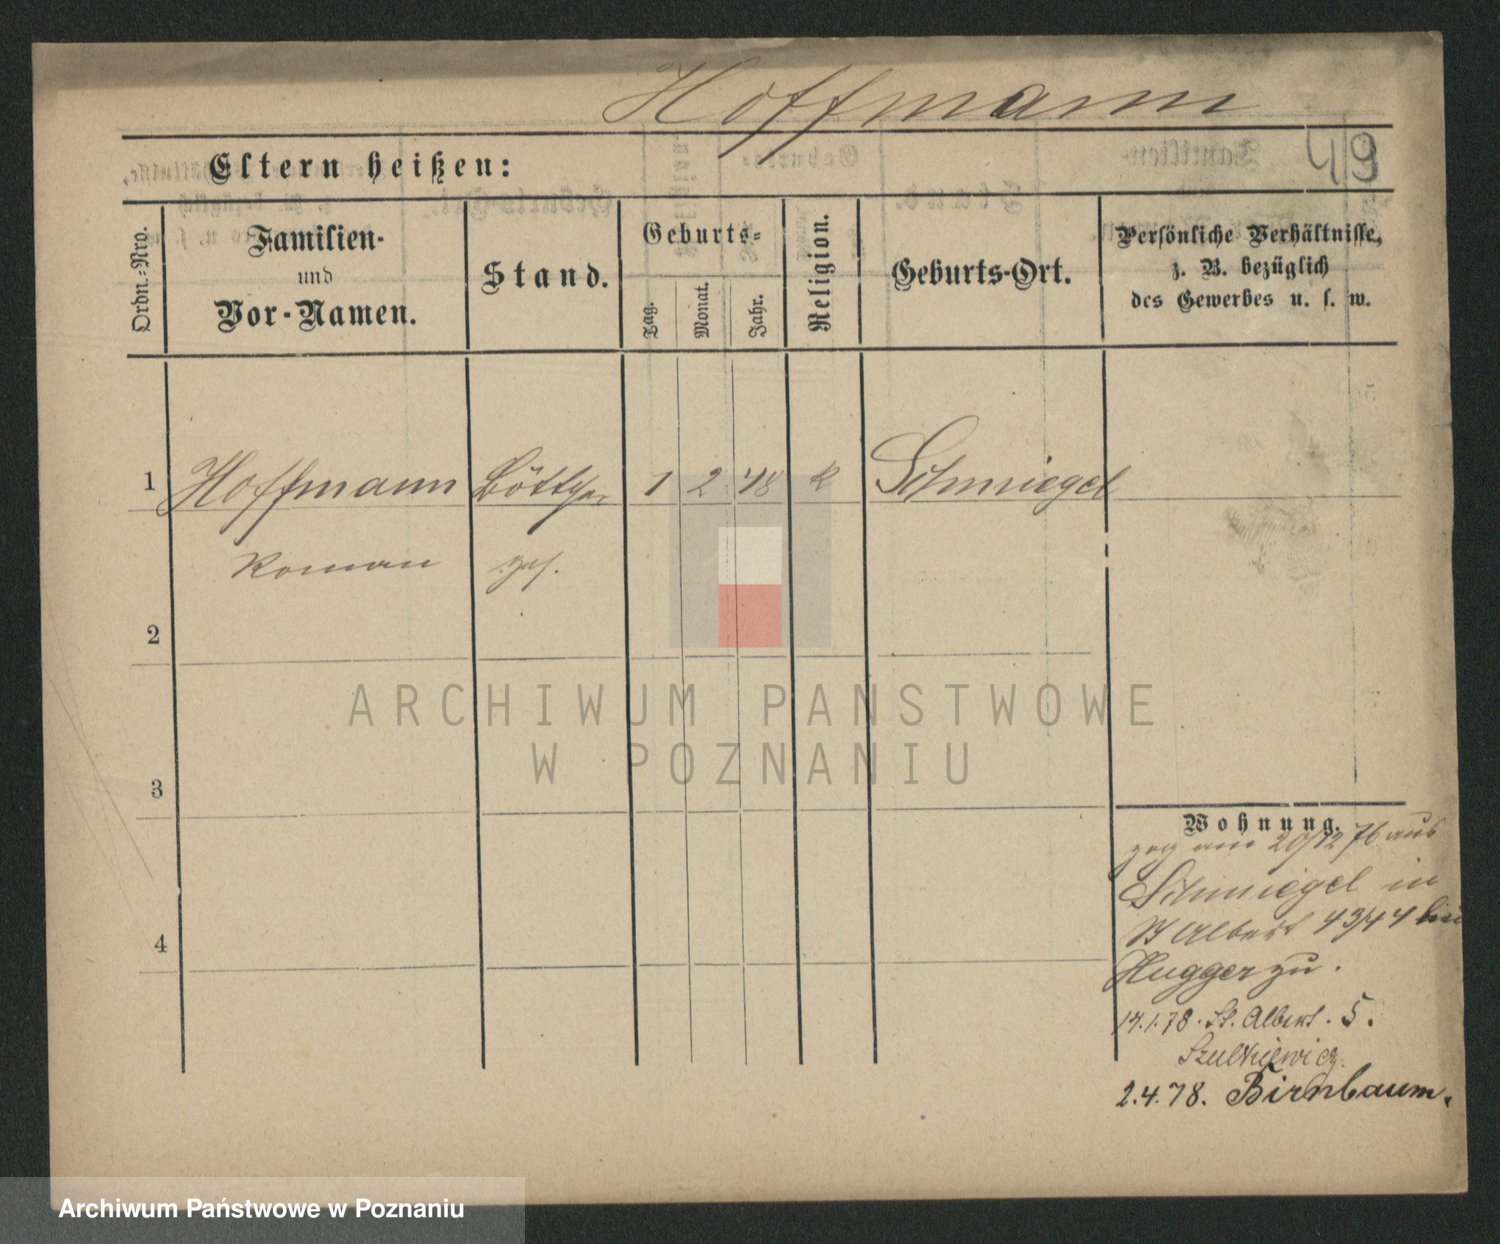 Hoffmann
49
Eltern heißen:
Ordn.-Nro.
Familien-
und
Vor-Namen.
Stand.
Geburts-
Tag.
Monat.
Jahr.
Religion.
Geburts-Ort.
Persönliche Verhältnisse,
z. B. bezüglich
des Gewerbes u. s. w.
1 Hoffmann Böttcher 1 2 48 k Schmiegel
Roman ges.
2
3
4
Wohnung.
zog am 20/12 76 aus
Schmiegel in
St Albert 43/44 bei
Hugger zu.
17.1.78. St. Albert. 5.
Szulkiewicz.
2.4.78. Birnbaum.
ARCHIWUM PAŃSTWOWE
W POZNANIU
Archiwum Państwowe w Poznaniu